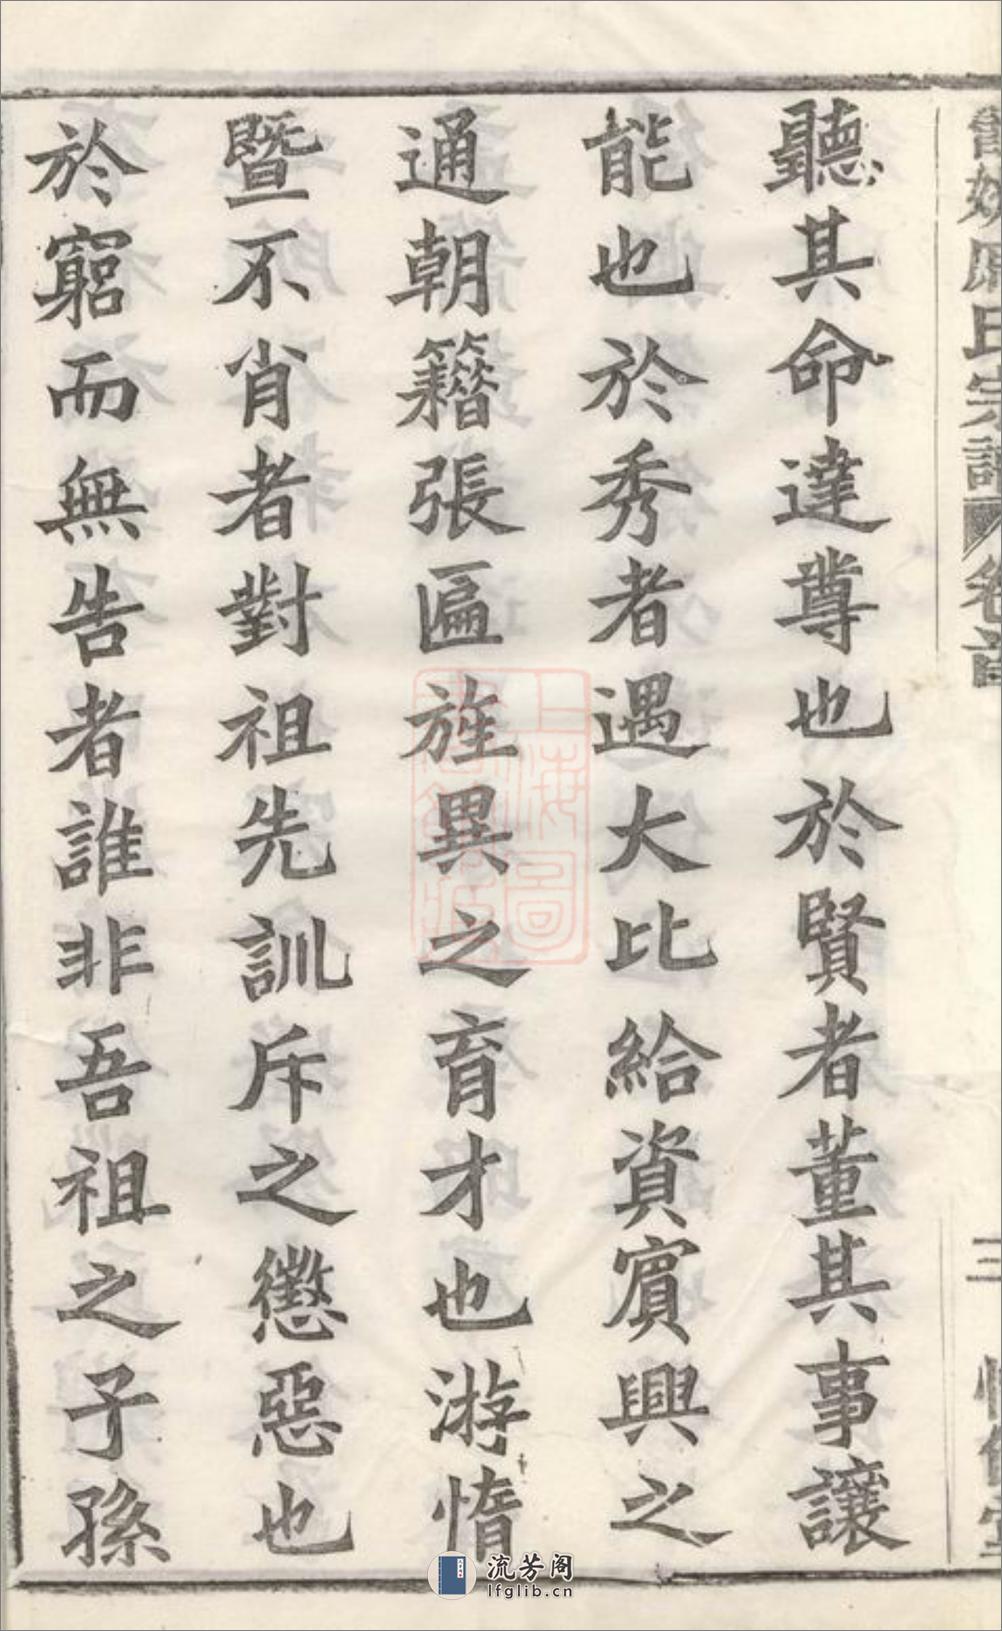 聽其命達尊也於賢者董其事讓
能也於秀者遇大比給資賓興之
通朝籍張匾旌異之育才也游惰
暨不肖者對祖先訓斥之懲惡也
於窮而無告者誰非吾祖之子孫
氏宗譜 卷首
三
上海圖
流芳阁
lfglib.cn